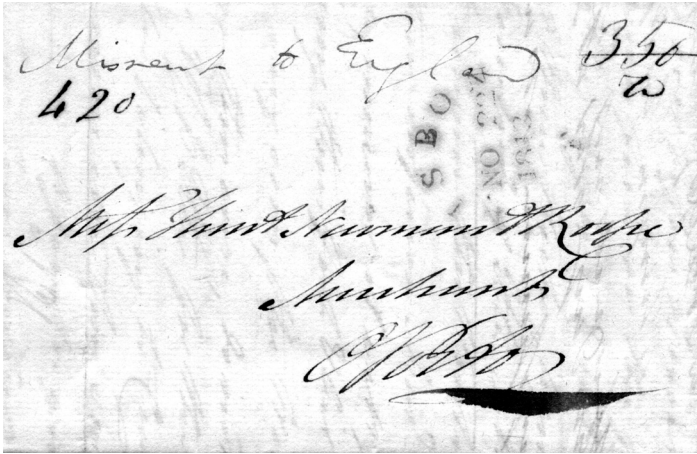 Missent to England 350
420
LISBO
NO 22
1813
Mess Hunt Newman & Roope
Merchants
Oporto